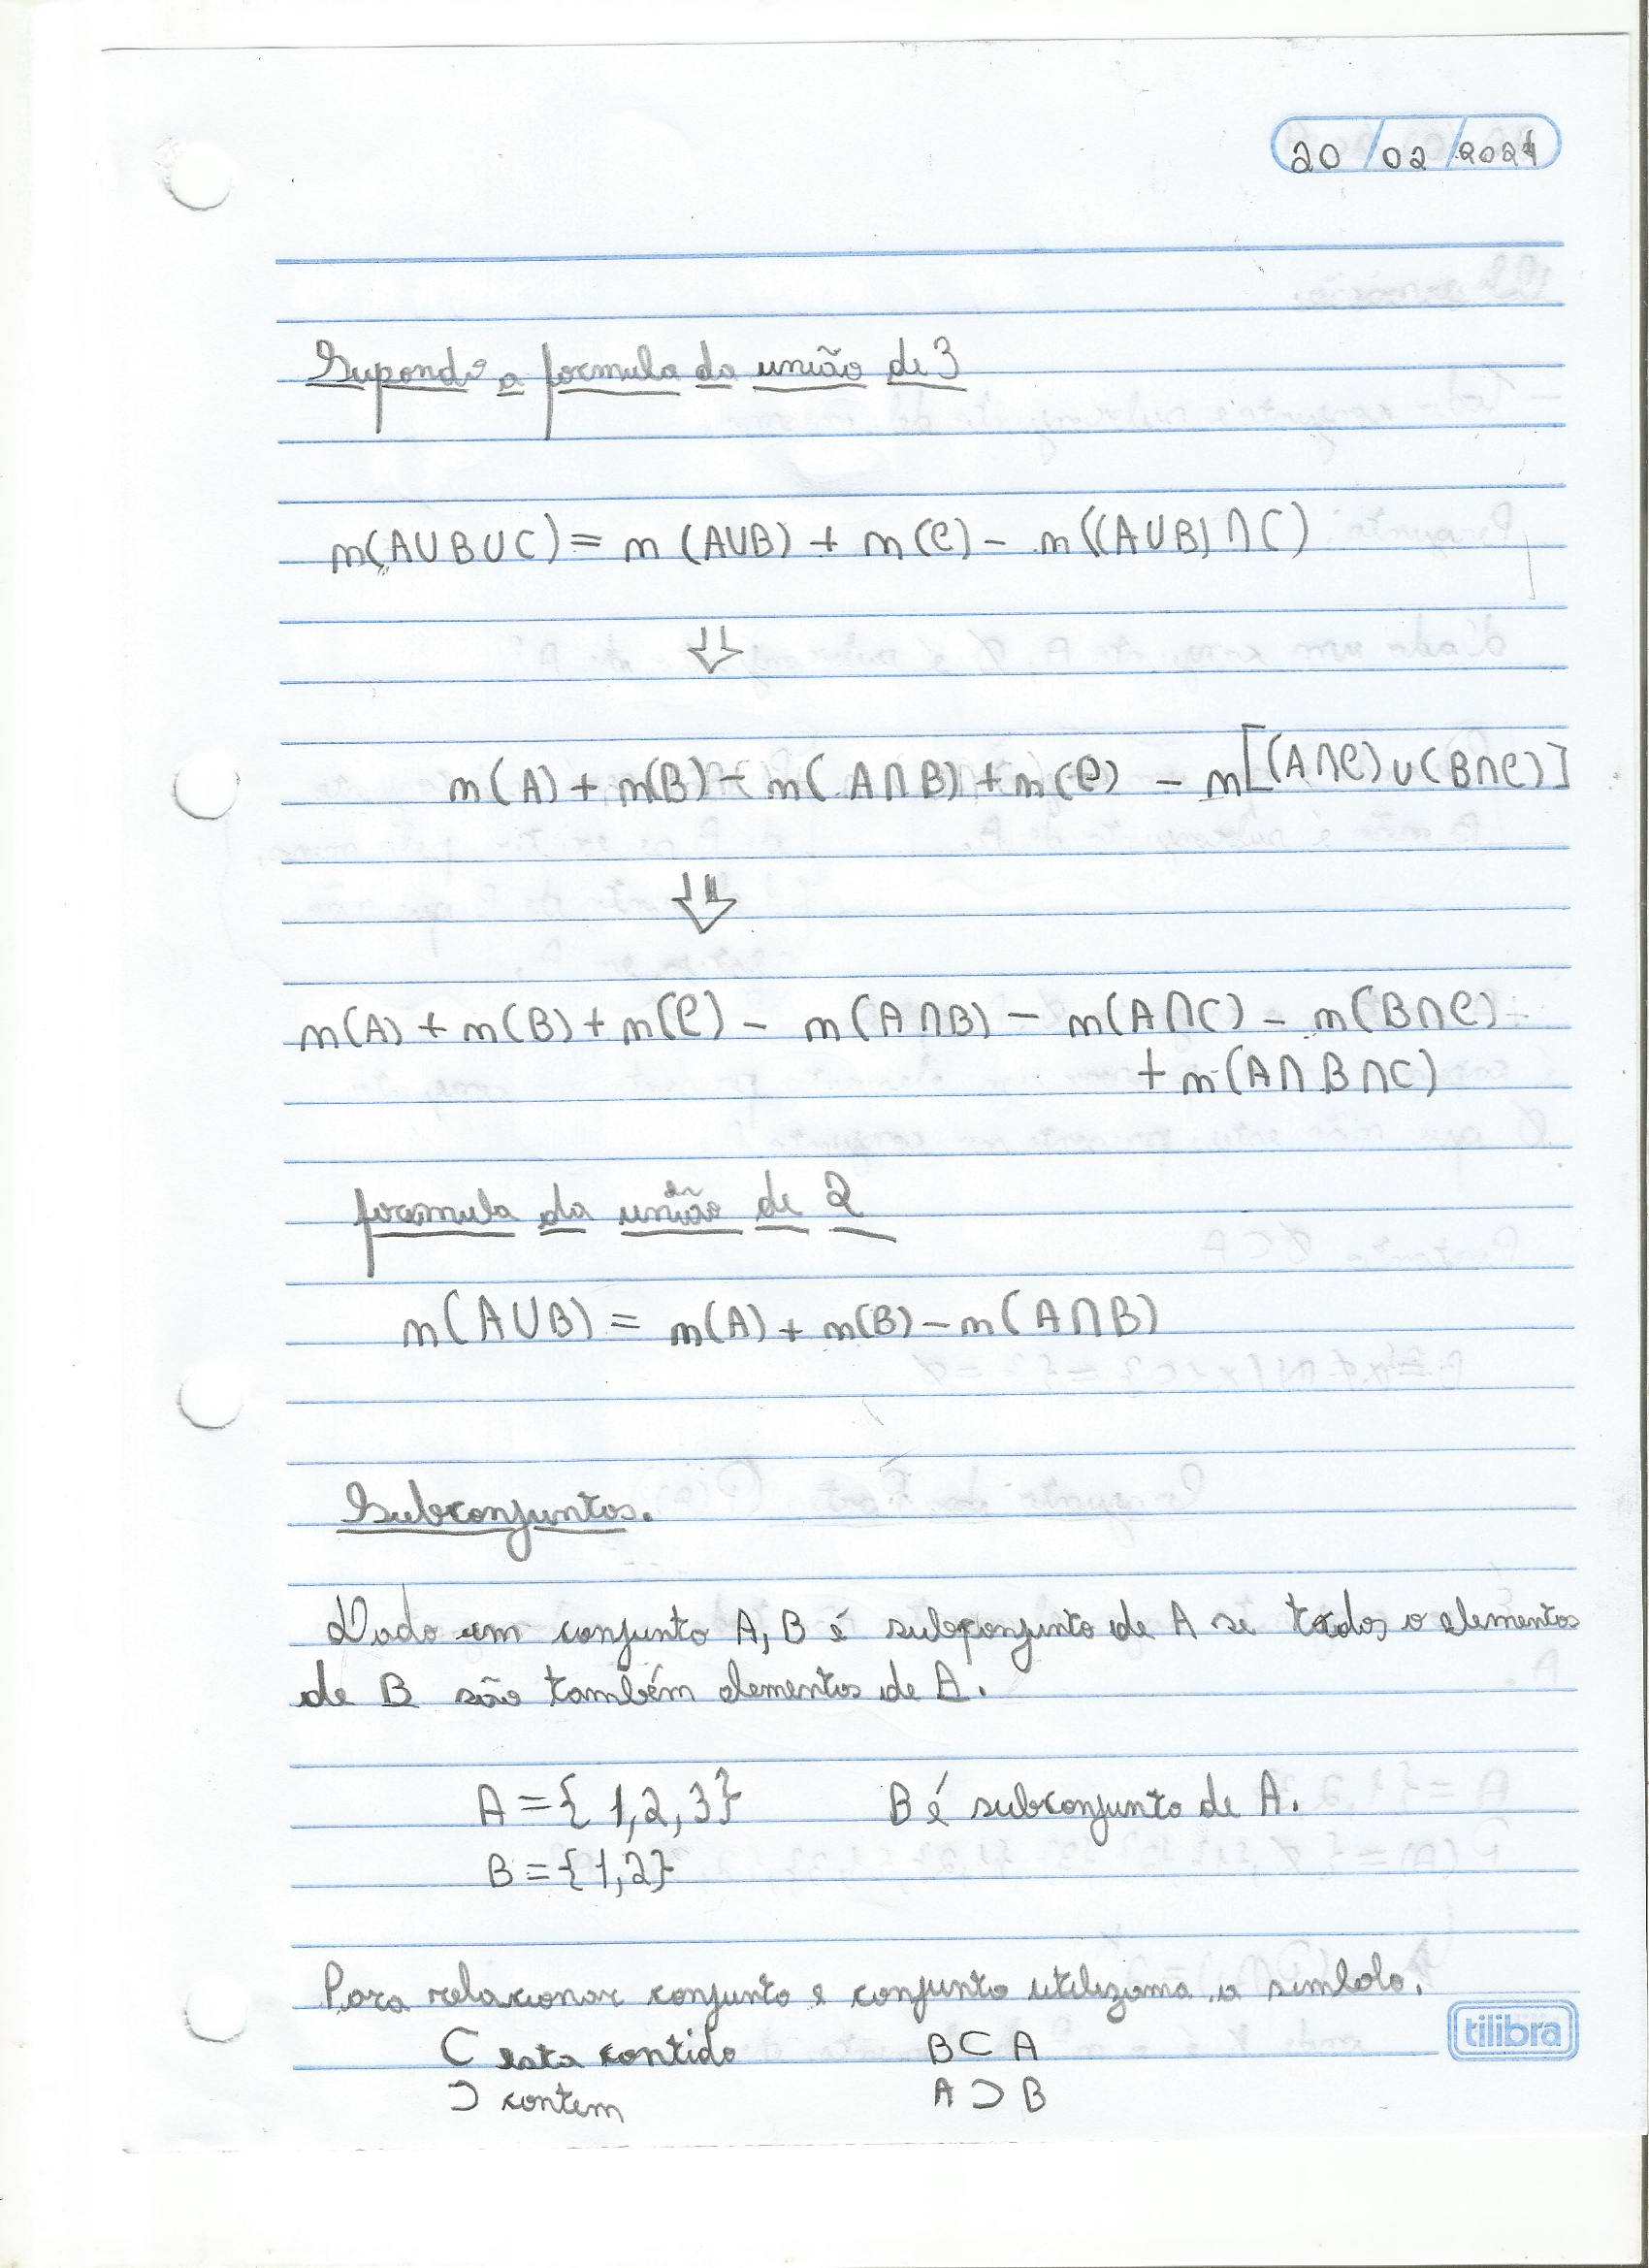 20/02/2024
Supondo a formula da união de 3
n(A∪B∪C) = n(A∪B) + n(C) - n((A∪B)∩C)
⇓
n(A) + n(B) - n(A∩B) + n(C) - n[(A∩C)∪(B∩C)]
⇓
n(A) + n(B) + n(C) - n(A∩B) - n(A∩C) - n(B∩C)
+ n(A∩B∩C)
formula da união de 2
n(A∪B) = n(A) + n(B) - n(A∩B)
Subconjuntos.
Dado um conjunto A, B é subconjunto de A se todos o elementos
de B são também elementos de A.
A = { 1, 2, 3} B é subconjunto de A.
B = {1, 2}
Para relacionar conjunto e conjunto utilizama o simbolo.
⊂ esta contido B ⊂ A
⊃ contem A ⊃ B
tilibra